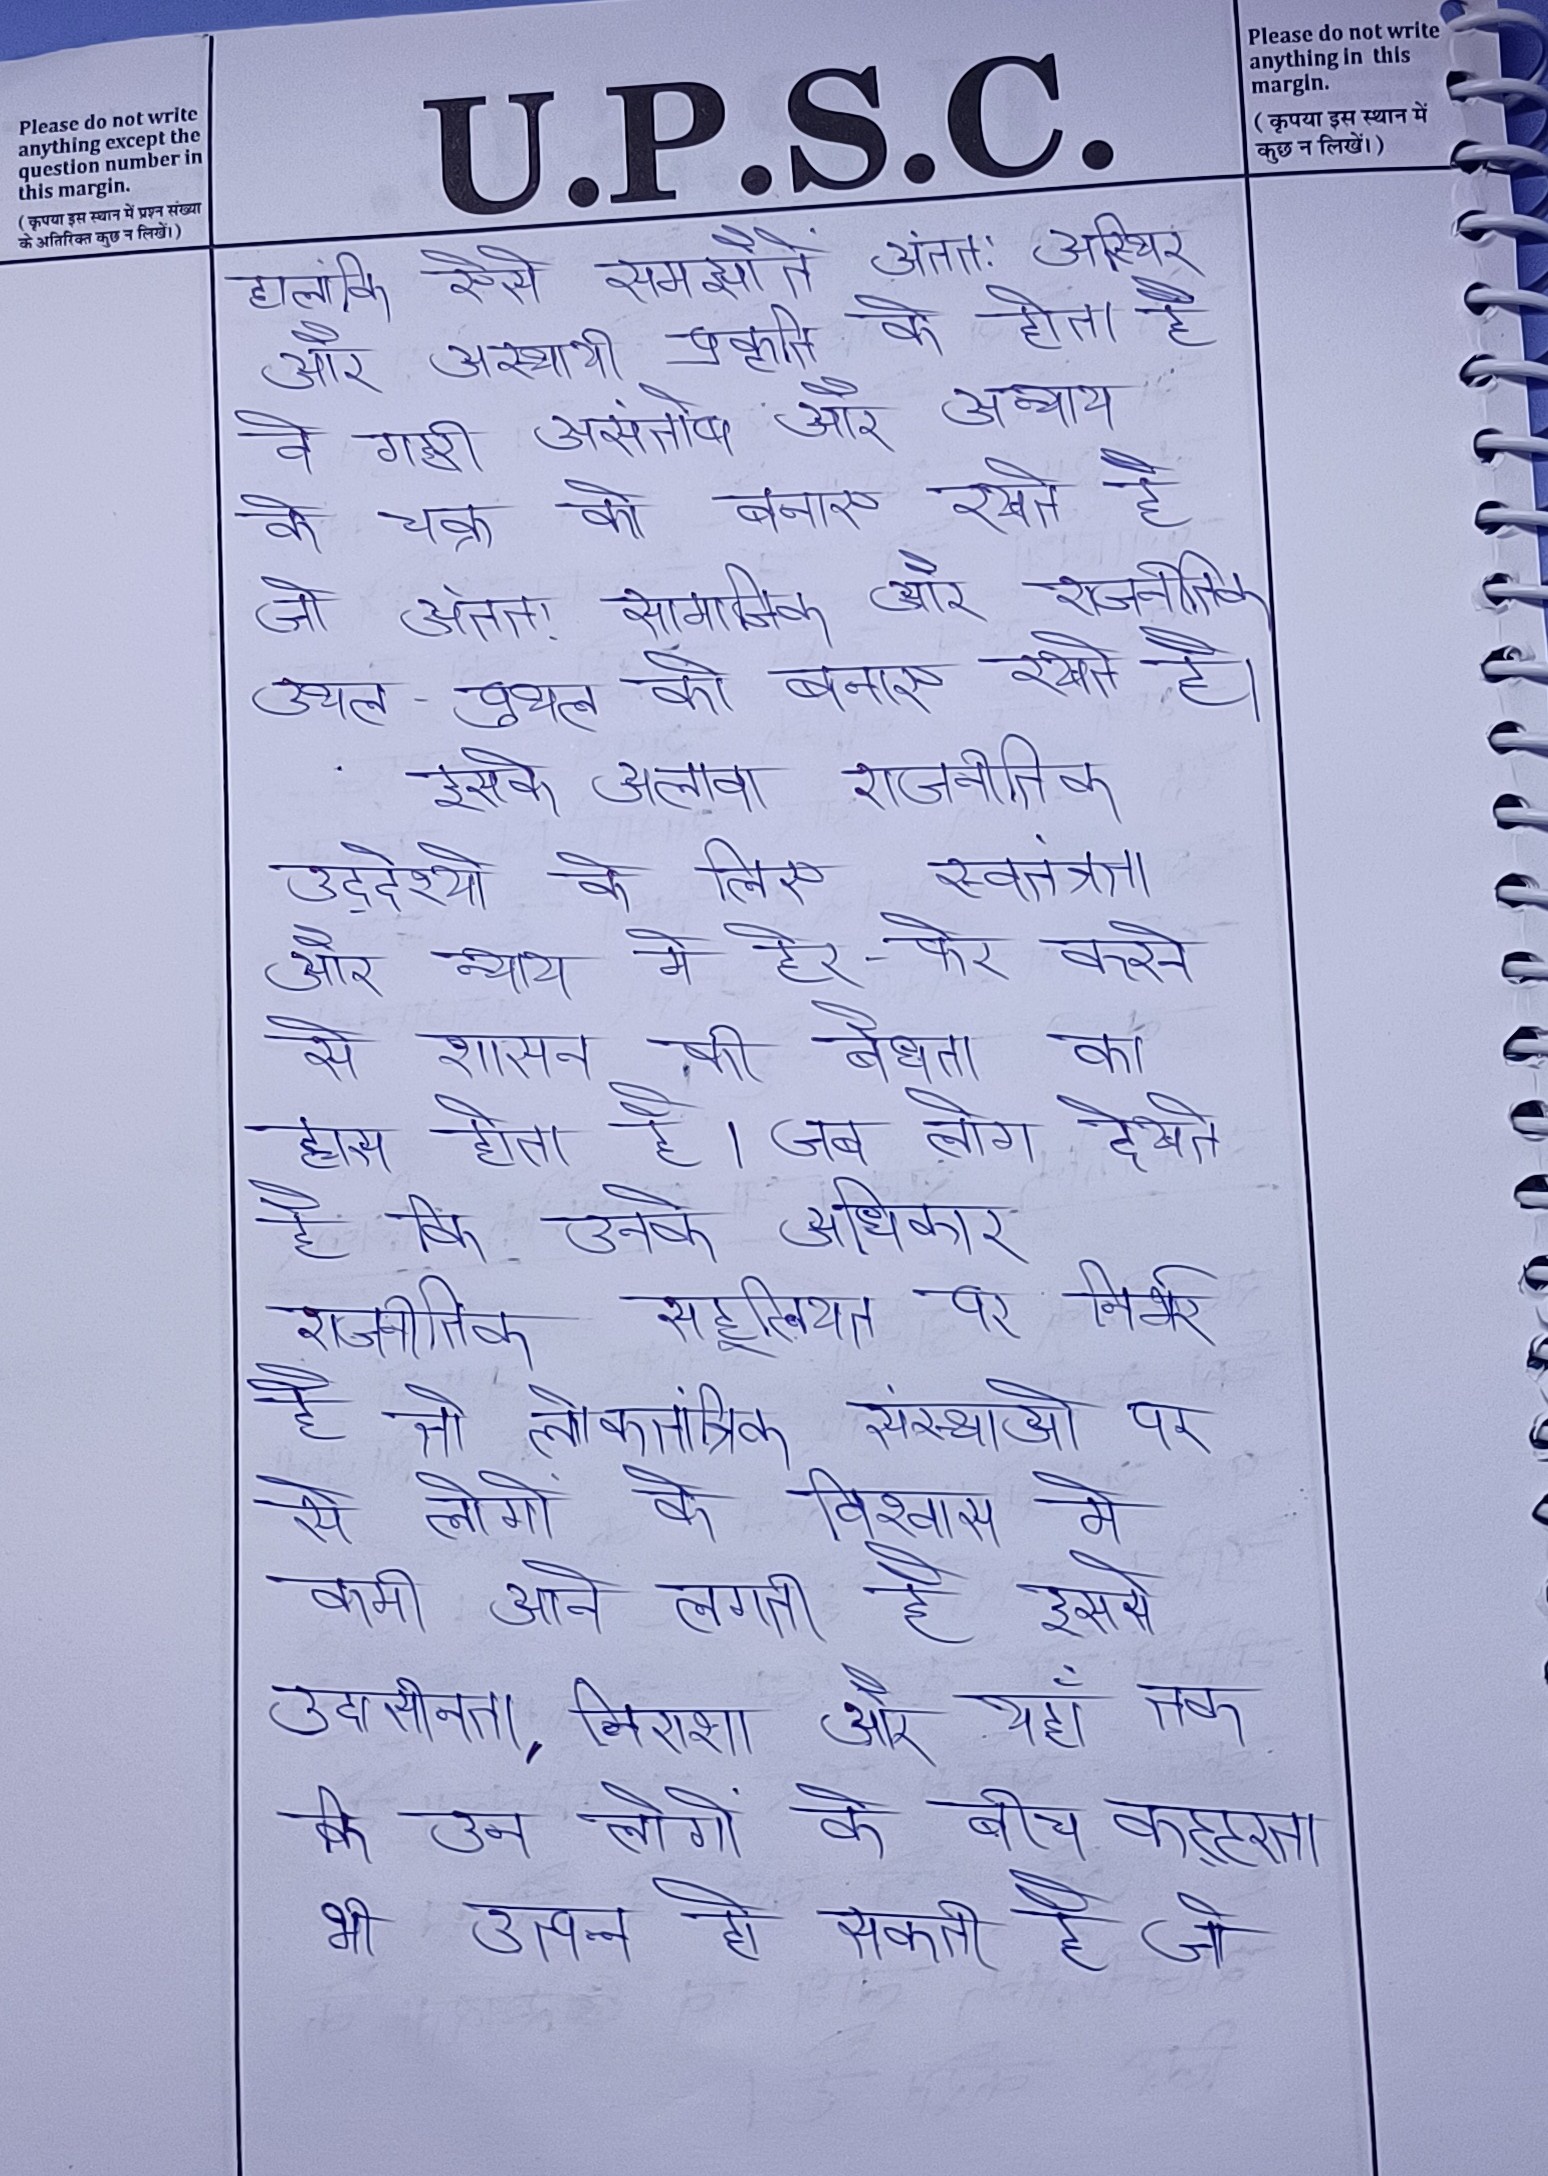 Please do not write
anything except the
question number in
this margin.
( कृपया इस स्थान में प्रश्न संख्या
के अतिरिक्त कुछ न लिखें।)
U.P.S.C.
Please do not write
anything in this
margin.
( कृपया इस स्थान में
कुछ न लिखें।)
हालांकि ऐसे समझौतें अंततः अस्थिर
और अस्थायी प्रकृति के होता है
वे गहरी असंतोष और अन्याय
के चक्र को बनाए रखते है
जो अंततः सामाजिक और राजनीतिक
उथल - पुथल को बनाए रखते है।
इसके अलावा राजनीतिक
उद्देश्यो के लिए स्वतंत्रता
और न्याय मे हेर - फेर करने
से शासन की बैधता का
ह्रास होता है । जब लोग देखते
है कि उनके अधिकार
राजनीतिक सहूलियत पर निर्भर
है तो लोकतांत्रिक संस्थाओ पर
से लोगों के विश्वास मे
कमी आने लगती है इससे
उदासीनता, निराशा और यहाँ तक
कि उन लोगों के बीच कट्टरता
भी उत्पन्न हो सकती है जो